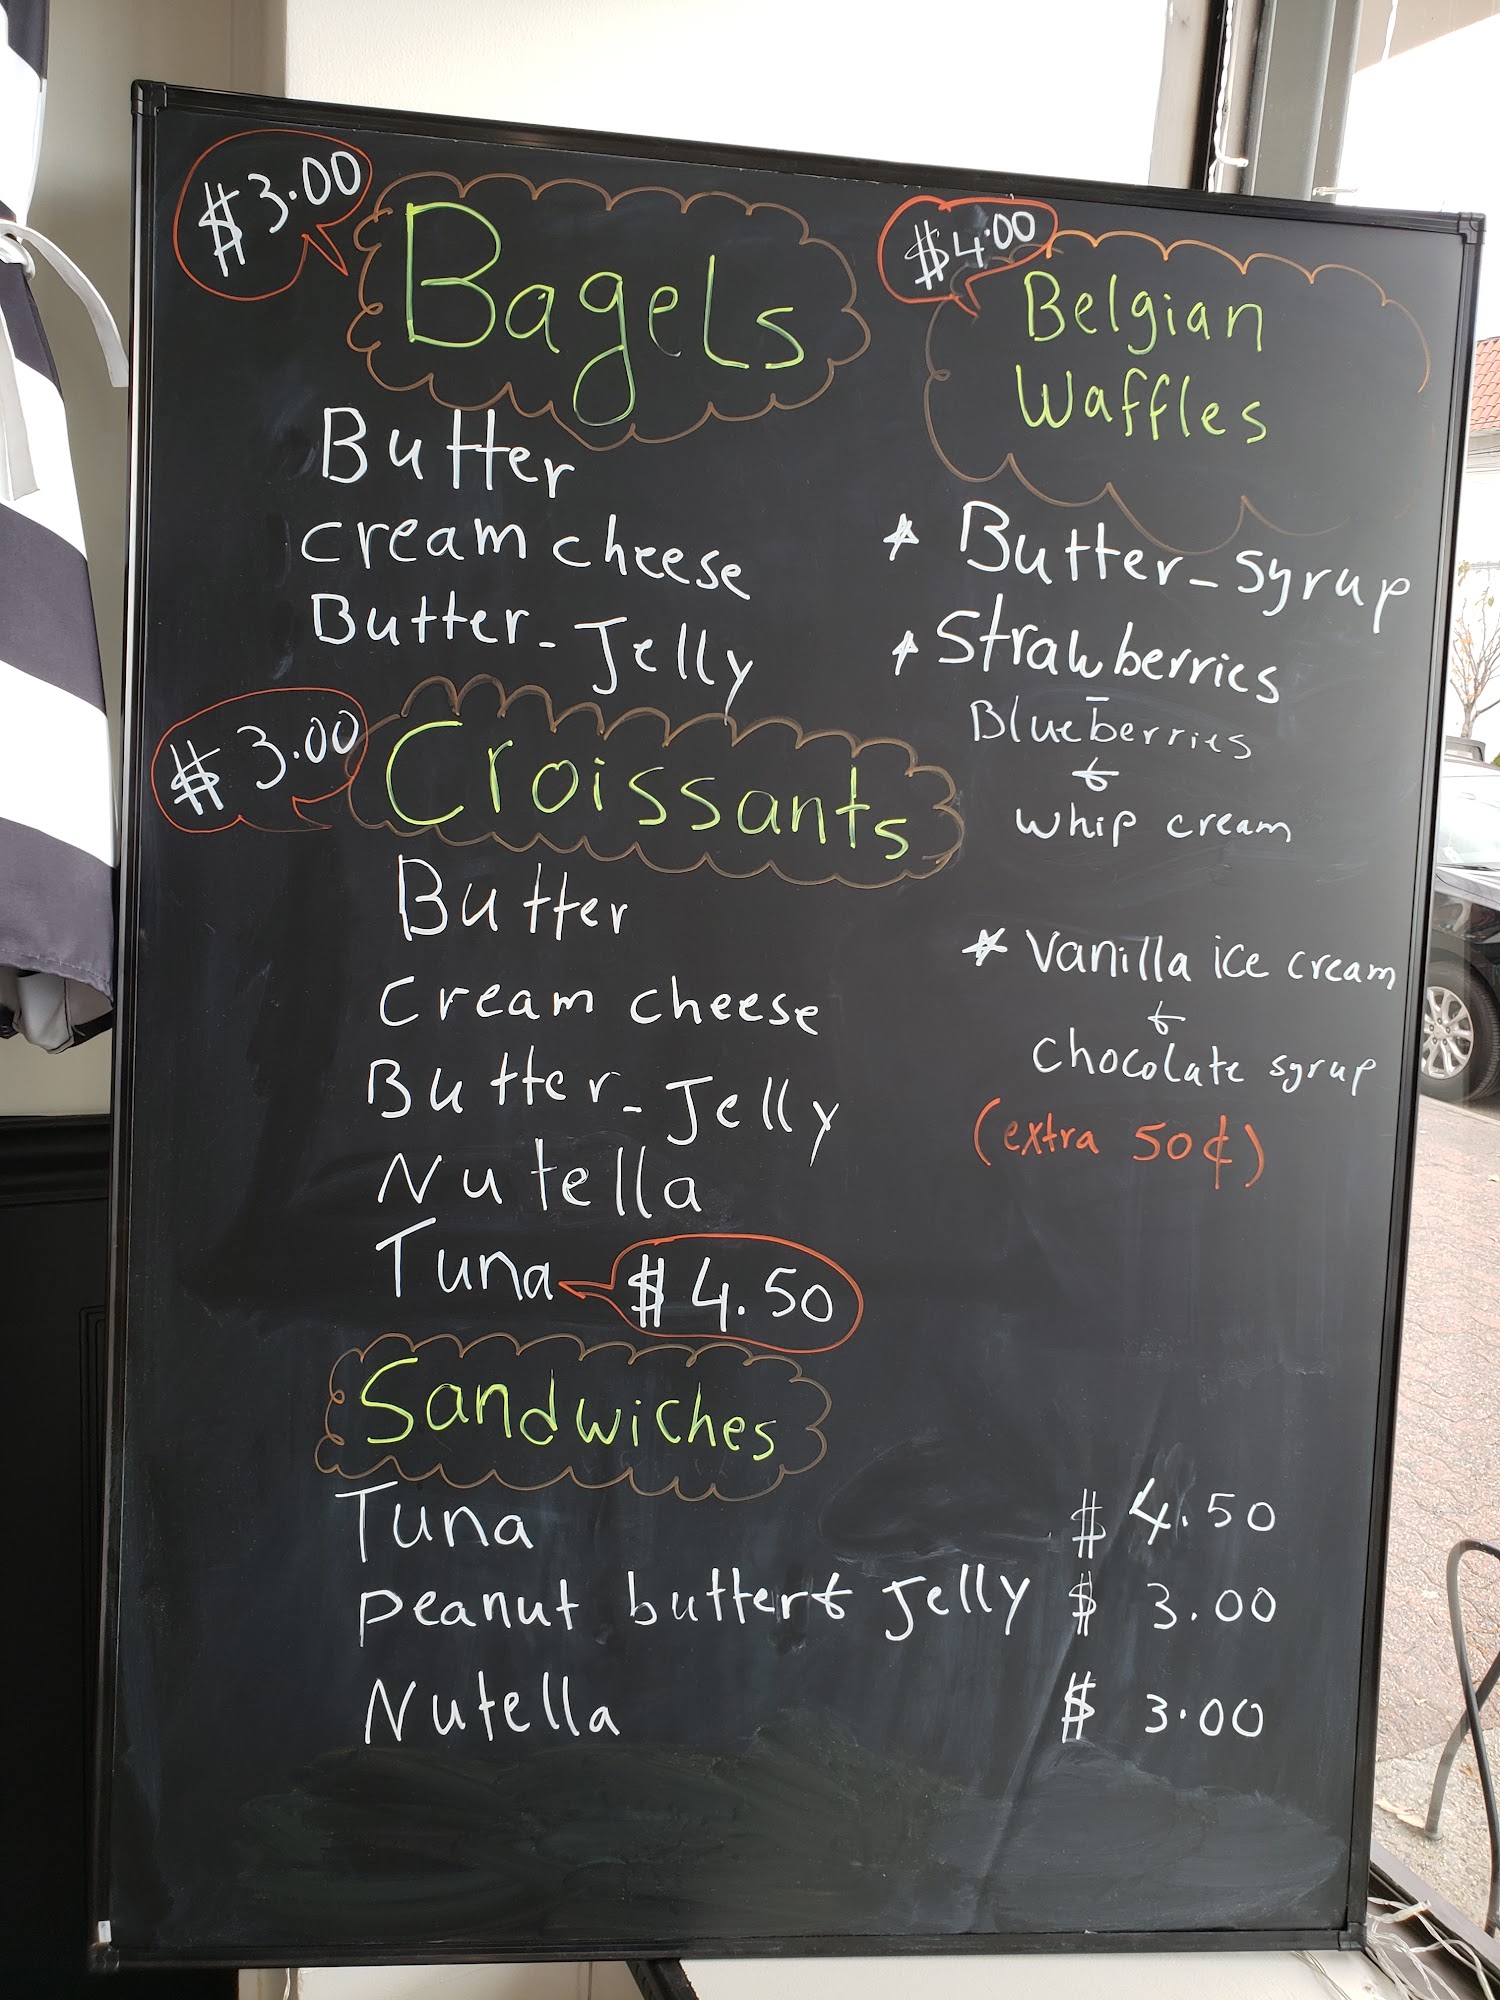 $3.00
Bagels
Butter
cream cheese
Butter - Jelly
$3.00
Croissants
Butter
Cream cheese
Butter - Jelly
Nutella
Tuna $4.50
Sandwiches
Tuna $ 4.50
peanut butter & Jelly $ 3.00
Nutella $ 3.00
$4.00
Belgian
Waffles
* Butter - syrup
* Strawberries
-
Blueberries
&
whip cream
* Vanilla ice cream
&
chocolate syrup
(extra 50¢)